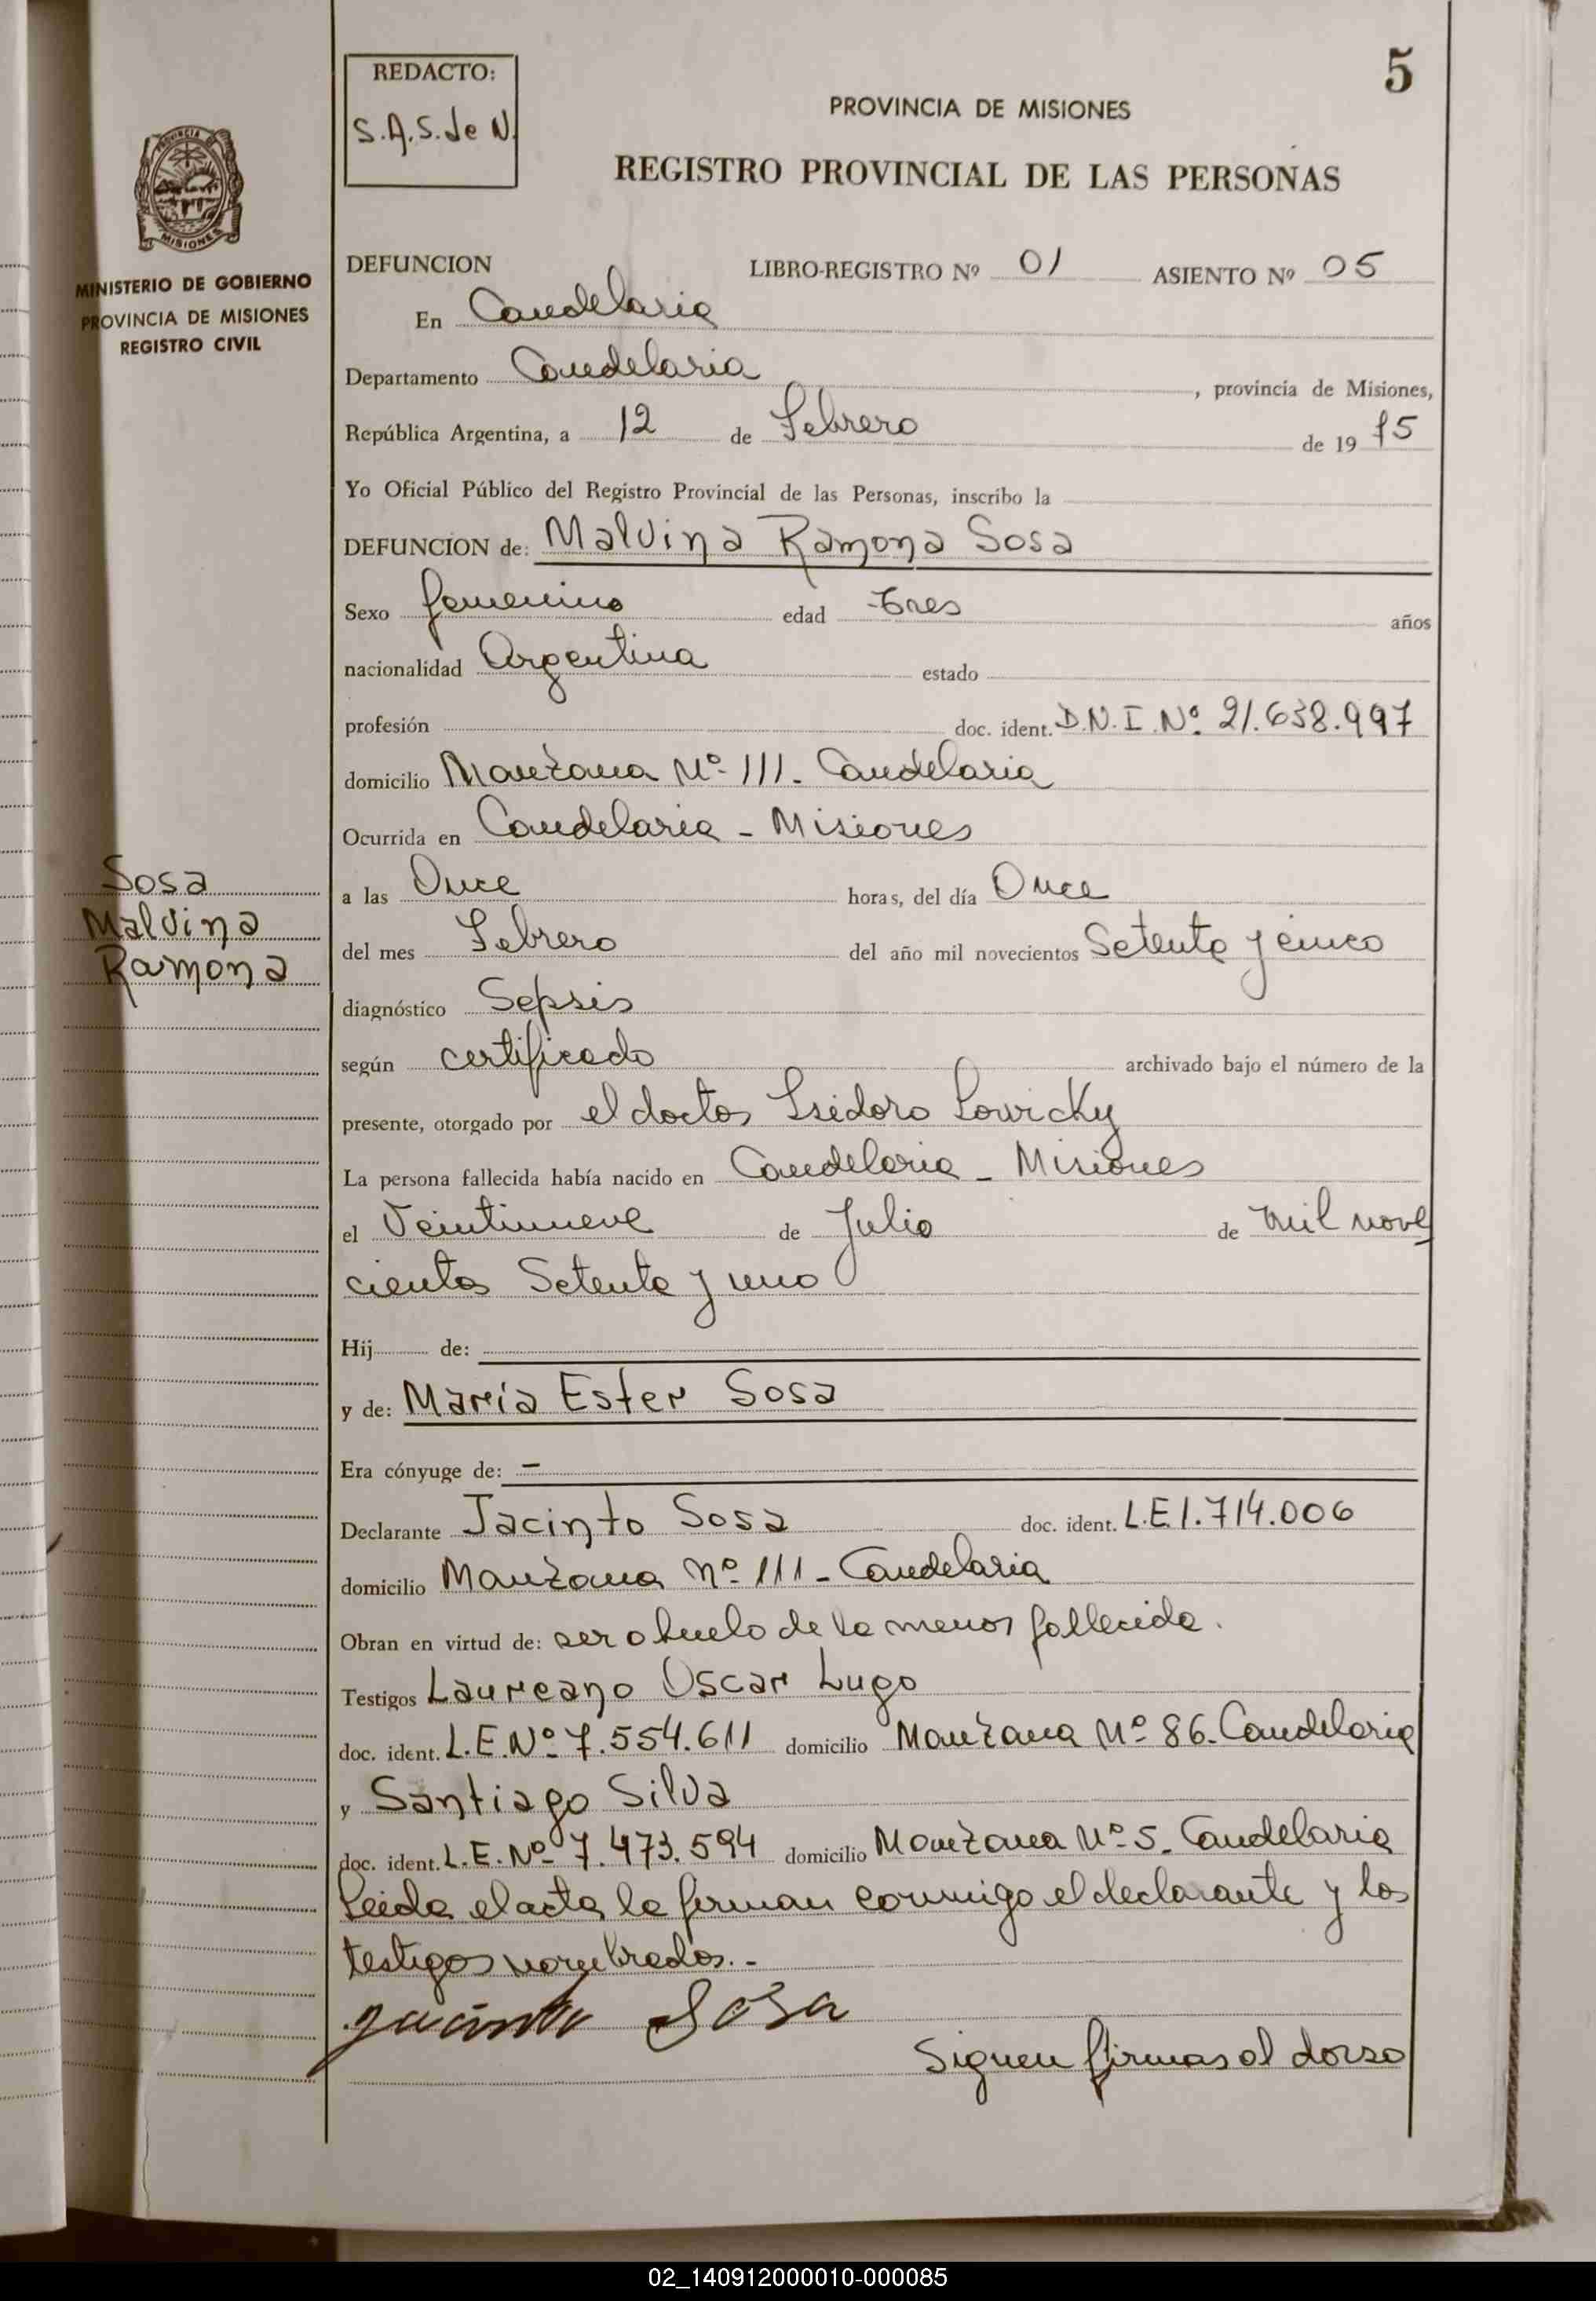 5
REDACTO:
S.A.S. de N.
PROVINCIA DE MISIONES
REGISTRO PROVINCIAL DE LAS PERSONAS
PROVINCIA
MISIONES
MINISTERIO DE GOBIERNO
PROVINCIA DE MISIONES
REGISTRO CIVIL
DEFUNCION LIBRO-REGISTRO Nº 01 ASIENTO Nº 05
En Candelaria
Departamento Candelaria, provincia de Misiones,
República Argentina, a 12 de Febrero de 1975
Yo Oficial Público del Registro Provincial de las Personas, inscribo la
DEFUNCION de: Malvina Ramona Sosa
Sexo femenino edad tres años
nacionalidad Argentina estado
profesión doc. ident. D.N.I. Nº 21.638.997
domicilio Manzana Nº 111 - Candelaria
Ocurrida en Candelaria - Misiones
Sosa
Malvina
Ramona
a las Once horas, del día Once
del mes Febrero del año mil novecientos Setenta y cinco
diagnóstico Sepsis
según certificado archivado bajo el número de la
presente, otorgado por el doctor Isidoro Lowicky
La persona fallecida había nacido en Candelaria - Misiones
el Veintinueve de Julio de mil nove
cientos Setenta y uno
Hij de:
y de: María Ester Sosa
Era cónyuge de: -
Declarante Jacinto Sosa doc. ident. L.E 1.714.006
domicilio Manzana nº 111 - Candelaria
Obran en virtud de: ser abuelo de la menor fallecida.
Testigos Laureano Oscar Lugo
doc. ident. L.E. Nº 7.554.611 domicilio Manzana Nº 86. Candelaria
y Santiago Silva
doc. ident. L.E. Nº 7.473.594 domicilio Manzana Nº 5. Candelaria
Leida el acta la firman conmigo el declarante y los
testigos nombrados. -
Jacinto Sosa
Siguen firmas al dorso
02_140912000010-000085